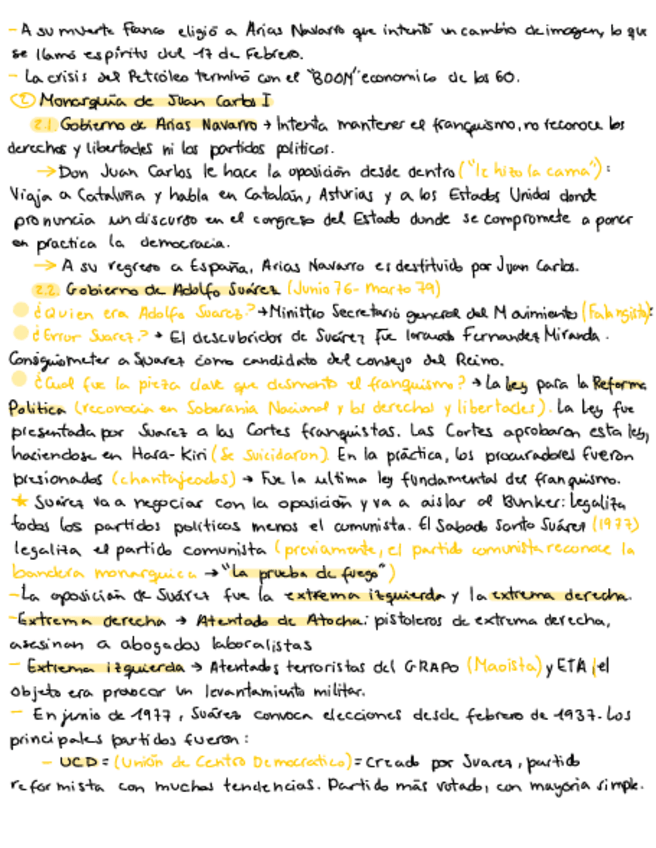 - A su muerte Franco eligió a Arias Navarro que intentó un cambio de imagen, lo que
se llamó espíritu del 17 de Febrero.
- La crisis del Petróleo terminó con el "BOOM" economico de los 60.
② Monarquía de Juan Carlos I
2.1. Gobierno de Arias Navarro → Intenta mantener el franquismo, no reconoce los
derechos y libertades ni los partidos políticos.
→ Don Juan Carlos le hace la oposición desde dentro ("le hizo la cama"):
Viaja a Cataluña y habla en Catalán, Asturias y a los Estados Unidos donde
pronuncia un discurso en el congreso del Estado donde se compromete a poner
en practica la democracia.
→ A su regreso a España, Arias Navarro es destituido por Juan Carlos.
2.2. Gobierno de Adolfo Suárez (Junio 76- Marzo 79)
¿Quien era Adolfo Suarez? → Ministro Secretario general del Movimiento (Falangista):
¿Error Suarez? → El descubridor de Suárez fue Fernandez Miranda.
Consiguió meter a Suarez como candidato del consejo del Reino.
¿Cual fue la pieza clave que desmontó el franquismo? → La ley para la Reforma
Política (reconocía en Soberanía Nacional y los derechos y libertades). La Ley fue
presentada por Suarez a las Cortes franquistas. Las Cortes aprobaron esta ley,
haciendose en Hara-Kiri (Se suicidaron). En la práctica, los procuradores fueron
presionados (chantajeados) → Fue la ultima ley fundamental del franquismo.
★ Suárez va a negociar con la oposición y va a aislar al Bunker: legaliza
todos los partidos políticos menos el comunista. El Sabado Santo Suárez (1977)
legaliza el partido comunista (previamente, el partido comunista reconoce la
bandera monarquica → "La prueba de fuego")
- La oposición de Suárez fue la extrema izquierda y la extrema derecha.
- Extrema derecha → Atentado de Atocha: pistoleros de extrema derecha,
asesinan a abogados laboralistas
- Extrema izquierda → Atentados terroristas del GRAPO (Maoista) y ETA, el
objeto era provocar un levantamiento militar.
- En junio de 1977, Suárez convoca elecciones desde febrero de 1937. Los
principales partidos fueron:
- UCD = (Unión de Centro Democratico) = Creado por Suarez, partido
reformista con muchas tendencias. Partido más votado, con mayoría simple.